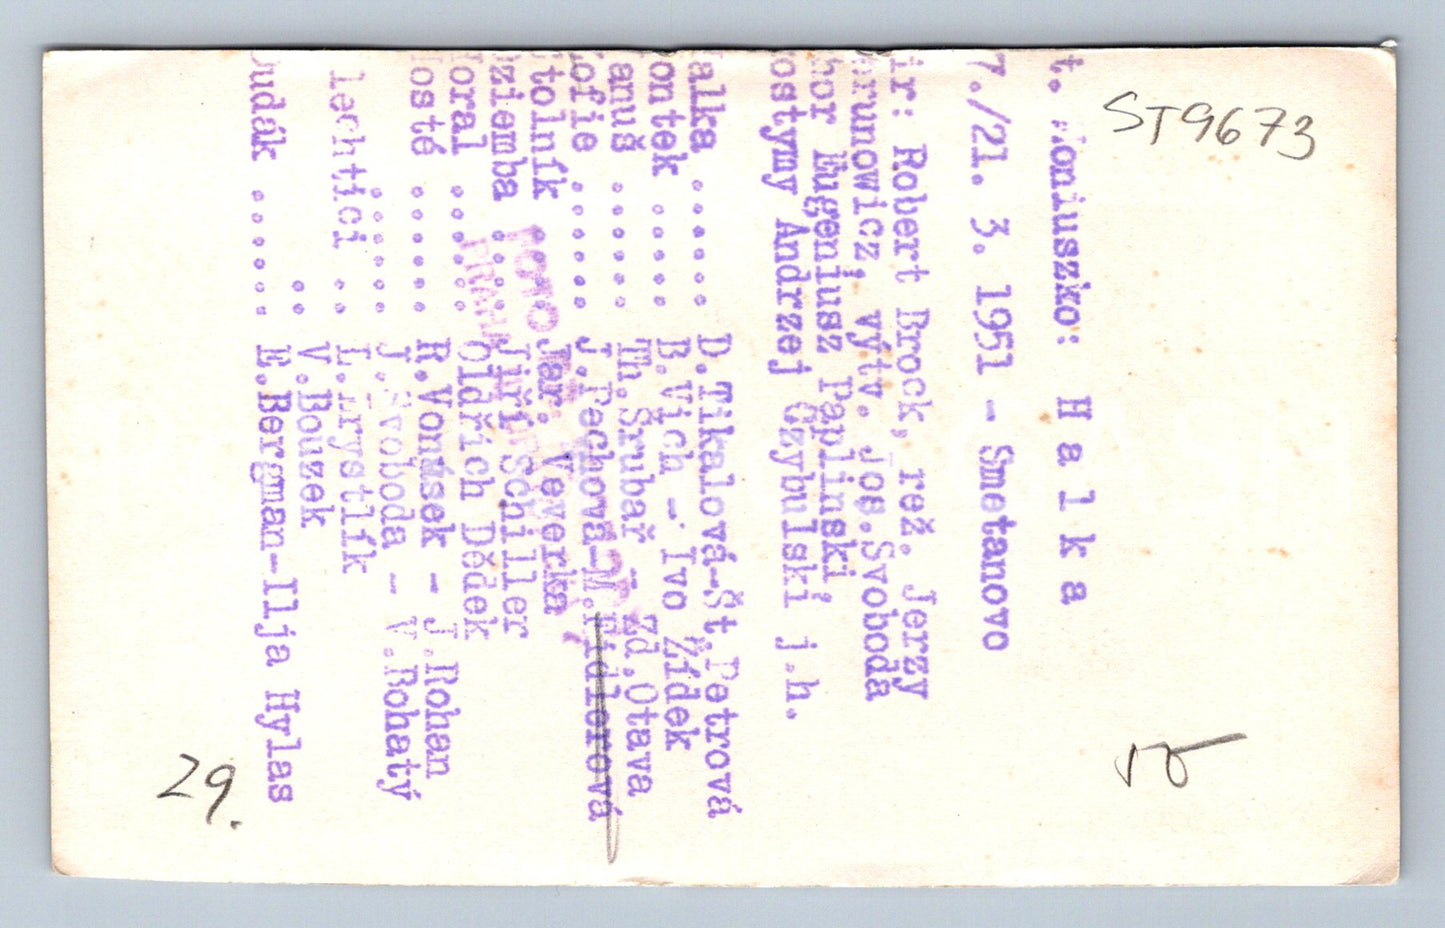 ST9673
t. Moniuszko: H a l k a
7./21. 3. 1951 - Smetanovo
ir: Robert Brock, rež. Jerzy
runowicz, výtv. Jos.Svoboda
hor Eugeniusz Paplinski,
ostymy Andrzej Czybulski j.h.
alka ...... D.Tikalová-Št.Petrová
ontek ..... B.Vich - Ivo Žídek
anuš ...... Th.Šrubař - Zd.Otava
ofie ...... J.Pechová-M.Fidlerová
tolník Jar. Veverka
ziemba Jiří Schiller
oral ...... Oldřich Dědek
osté ...... R.Vonásek - J.Rohan
...... J.Svoboda - V.Rohatý
lechtici .. L.Mrystlík
.. V.Bouzek
udák ...... E.Bergman-Ilja Hylas
FOTO
29.